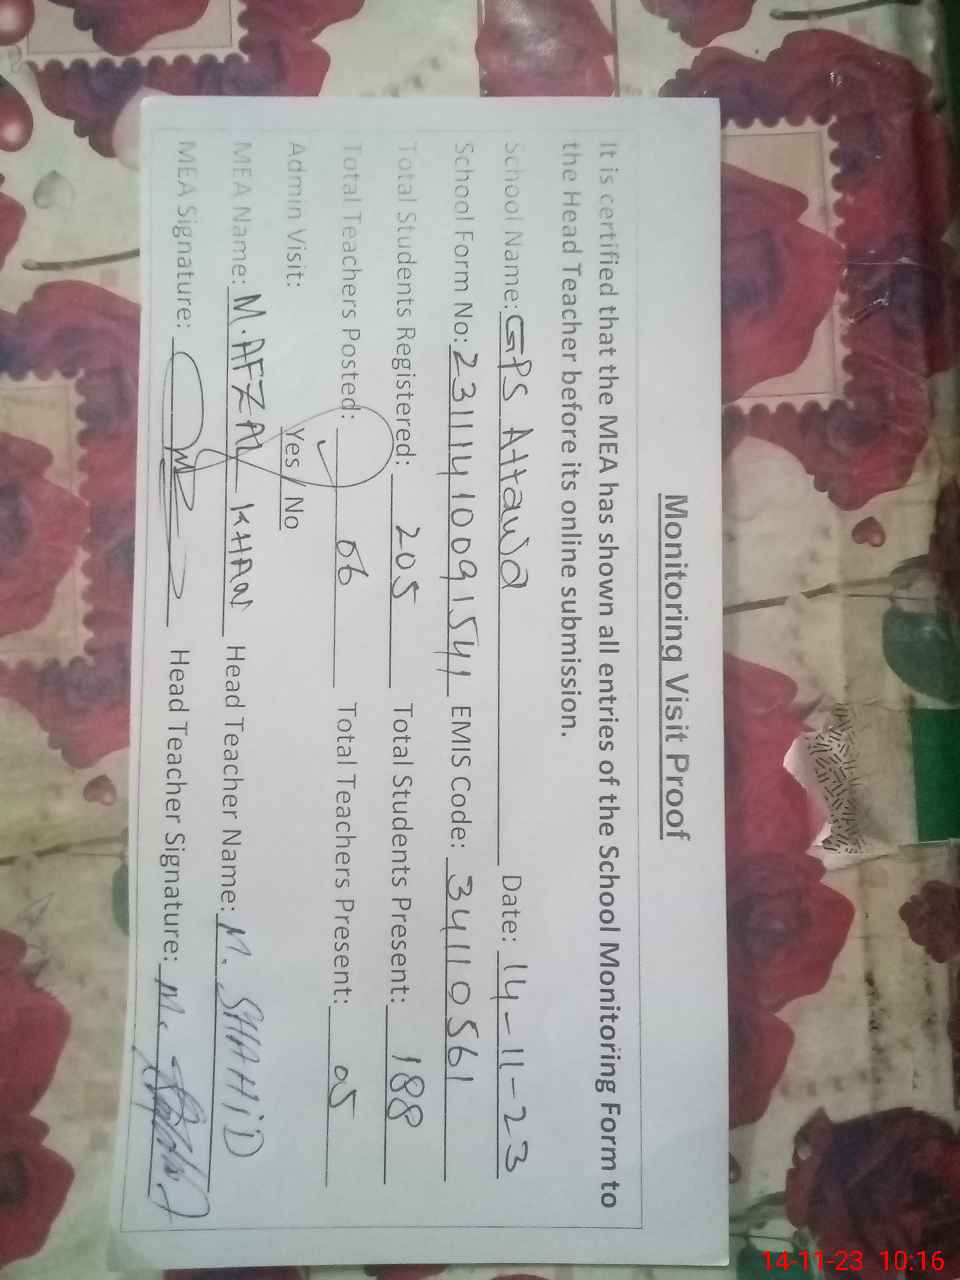 Monitoring Visit Proof
It is certified that the MEA has shown all entries of the School Monitoring Form to
the Head Teacher before its online submission.
School Name: GPS Attawa Date: 14-11-23
School Form No: 23111410091541 EMIS Code: 34110561
Total Students Registered: 205 Total Students Present: 188
Total Teachers Posted: 06 Total Teachers Present: 05
Admin Visit: Yes / No
MEA Name: M. AFZAL KHAN Head Teacher Name: M. SHAHiD
MEA Signature: Head Teacher Signature: M.
14-11-23 10:16